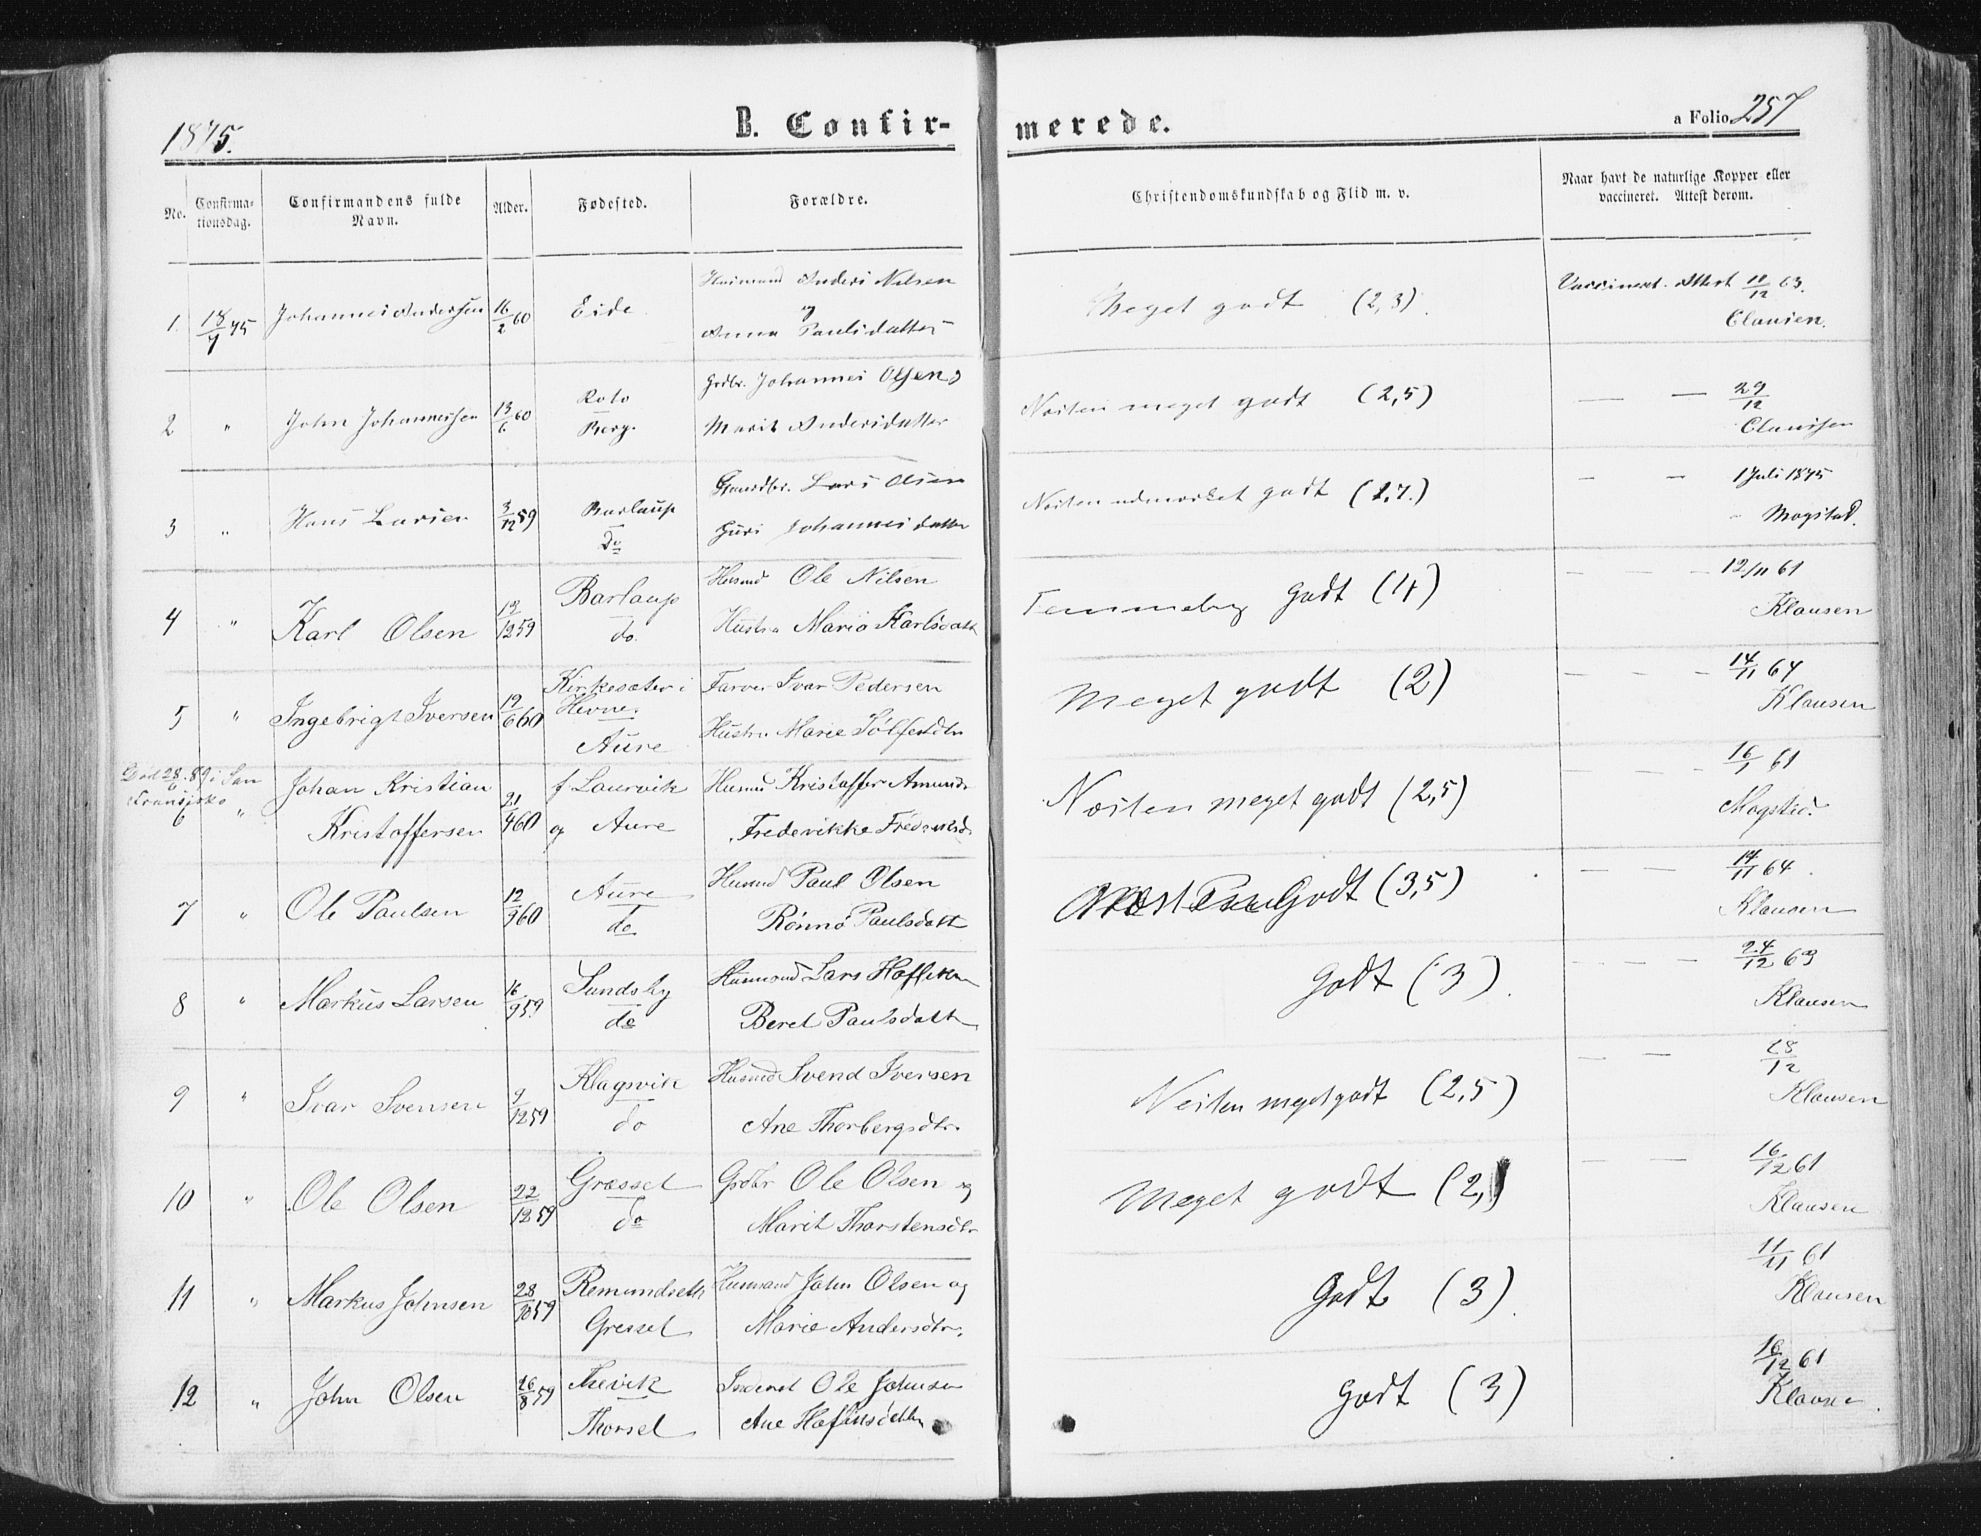 1875.
B. Confir-
merede.
a Folio 257
No.
Confirma-
tionsdag.
Confirmandens fulde
Navn.
Alder.
Fødested.
Forældre.
Christendomskundskab og Flid m. v.
Naar havt de naturlige Kopper eller
vaccineret. Attest derom.
1. 18/7 75 Johannes Andersen 16/2 60 Eide
Husmand Anders Nilsen
og
Anna Paulsdatter
Meget godt (2,3).
Vaccineret. Attest 12/12 63.
Clausen.
2 " John Johannessen 13/6 60
Berg.
Grdbr. Johannes Olsen
Marit Andersdatter
Næsten meget godt (2,5)
— — 29/12
Claussen
3 " Hans Larsen 3/12 59
Barlaup
Do
Gaardbr. Lars Olsen
Guri Johannesdatter
Næsten udmærket godt (1,7.)
— — 1 Juli 1875
Mogstad.
4 " Karl Olsen 12/12 59
Barlaup
do.
Husmd Ole Nilsen
Hustru Mario Karlsdatt
Temmelig Godt (4)
— — — 12/11 61
Klausen
5 " Ingebrigt Iversen 19/6 60
Kirkesæter i
Hevne
Aure
Farver Ivar Pedersen
Hustru Marie
Meget godt (2)
— — — 14/11 64
Klausen
Død 28/6 89 i San
Fransisko
6 " Johan Kristian
Kristoffersen 21/4 60
f Laurvik
og Aure
Husmd Kristoffer Amunds
Frederikke
Næsten meget godt (2,5)
— — — 16/1 61
Mogstad
7 " Ole Paulsen 12/9 60
Aure
do
Husmd Paul Olsen
Rønnø Paulsdatt
Godt (3,5)
— — — 14/11 64
Klausen
8 " Markus Larsen 16/9 59
Sundsby
do
Husmand Lars
Beret Paulsdatt
Godt (3).
— — — 24/12 63
Klausen
9 " Ivar Svensen 9/12 59
Klagsvik
do
Husmd Svend Iversen
Ane Thorbergsdtr.
Nesten meget godt (2,5)
— — 28/12
Klausen
10 " Ole Olsen 22/12 59
Græsset
do
Grdbr Ole Olsen og
Marit Thorstensdtr
Meget godt (2,)
— — — 16/12 61
Klausen
11 " Markus Johnsen 28/10 59
Remundseth
Gresset
Husmand John Olsen og
Marie Andersdtr.
Godt (3).
11/11 61
Klausen
12 " John Olsen 26/8 59
Thevik
Thorset
Inderst Ole Johnsen
Ane
Godt (3)
16/12 61
Klausen